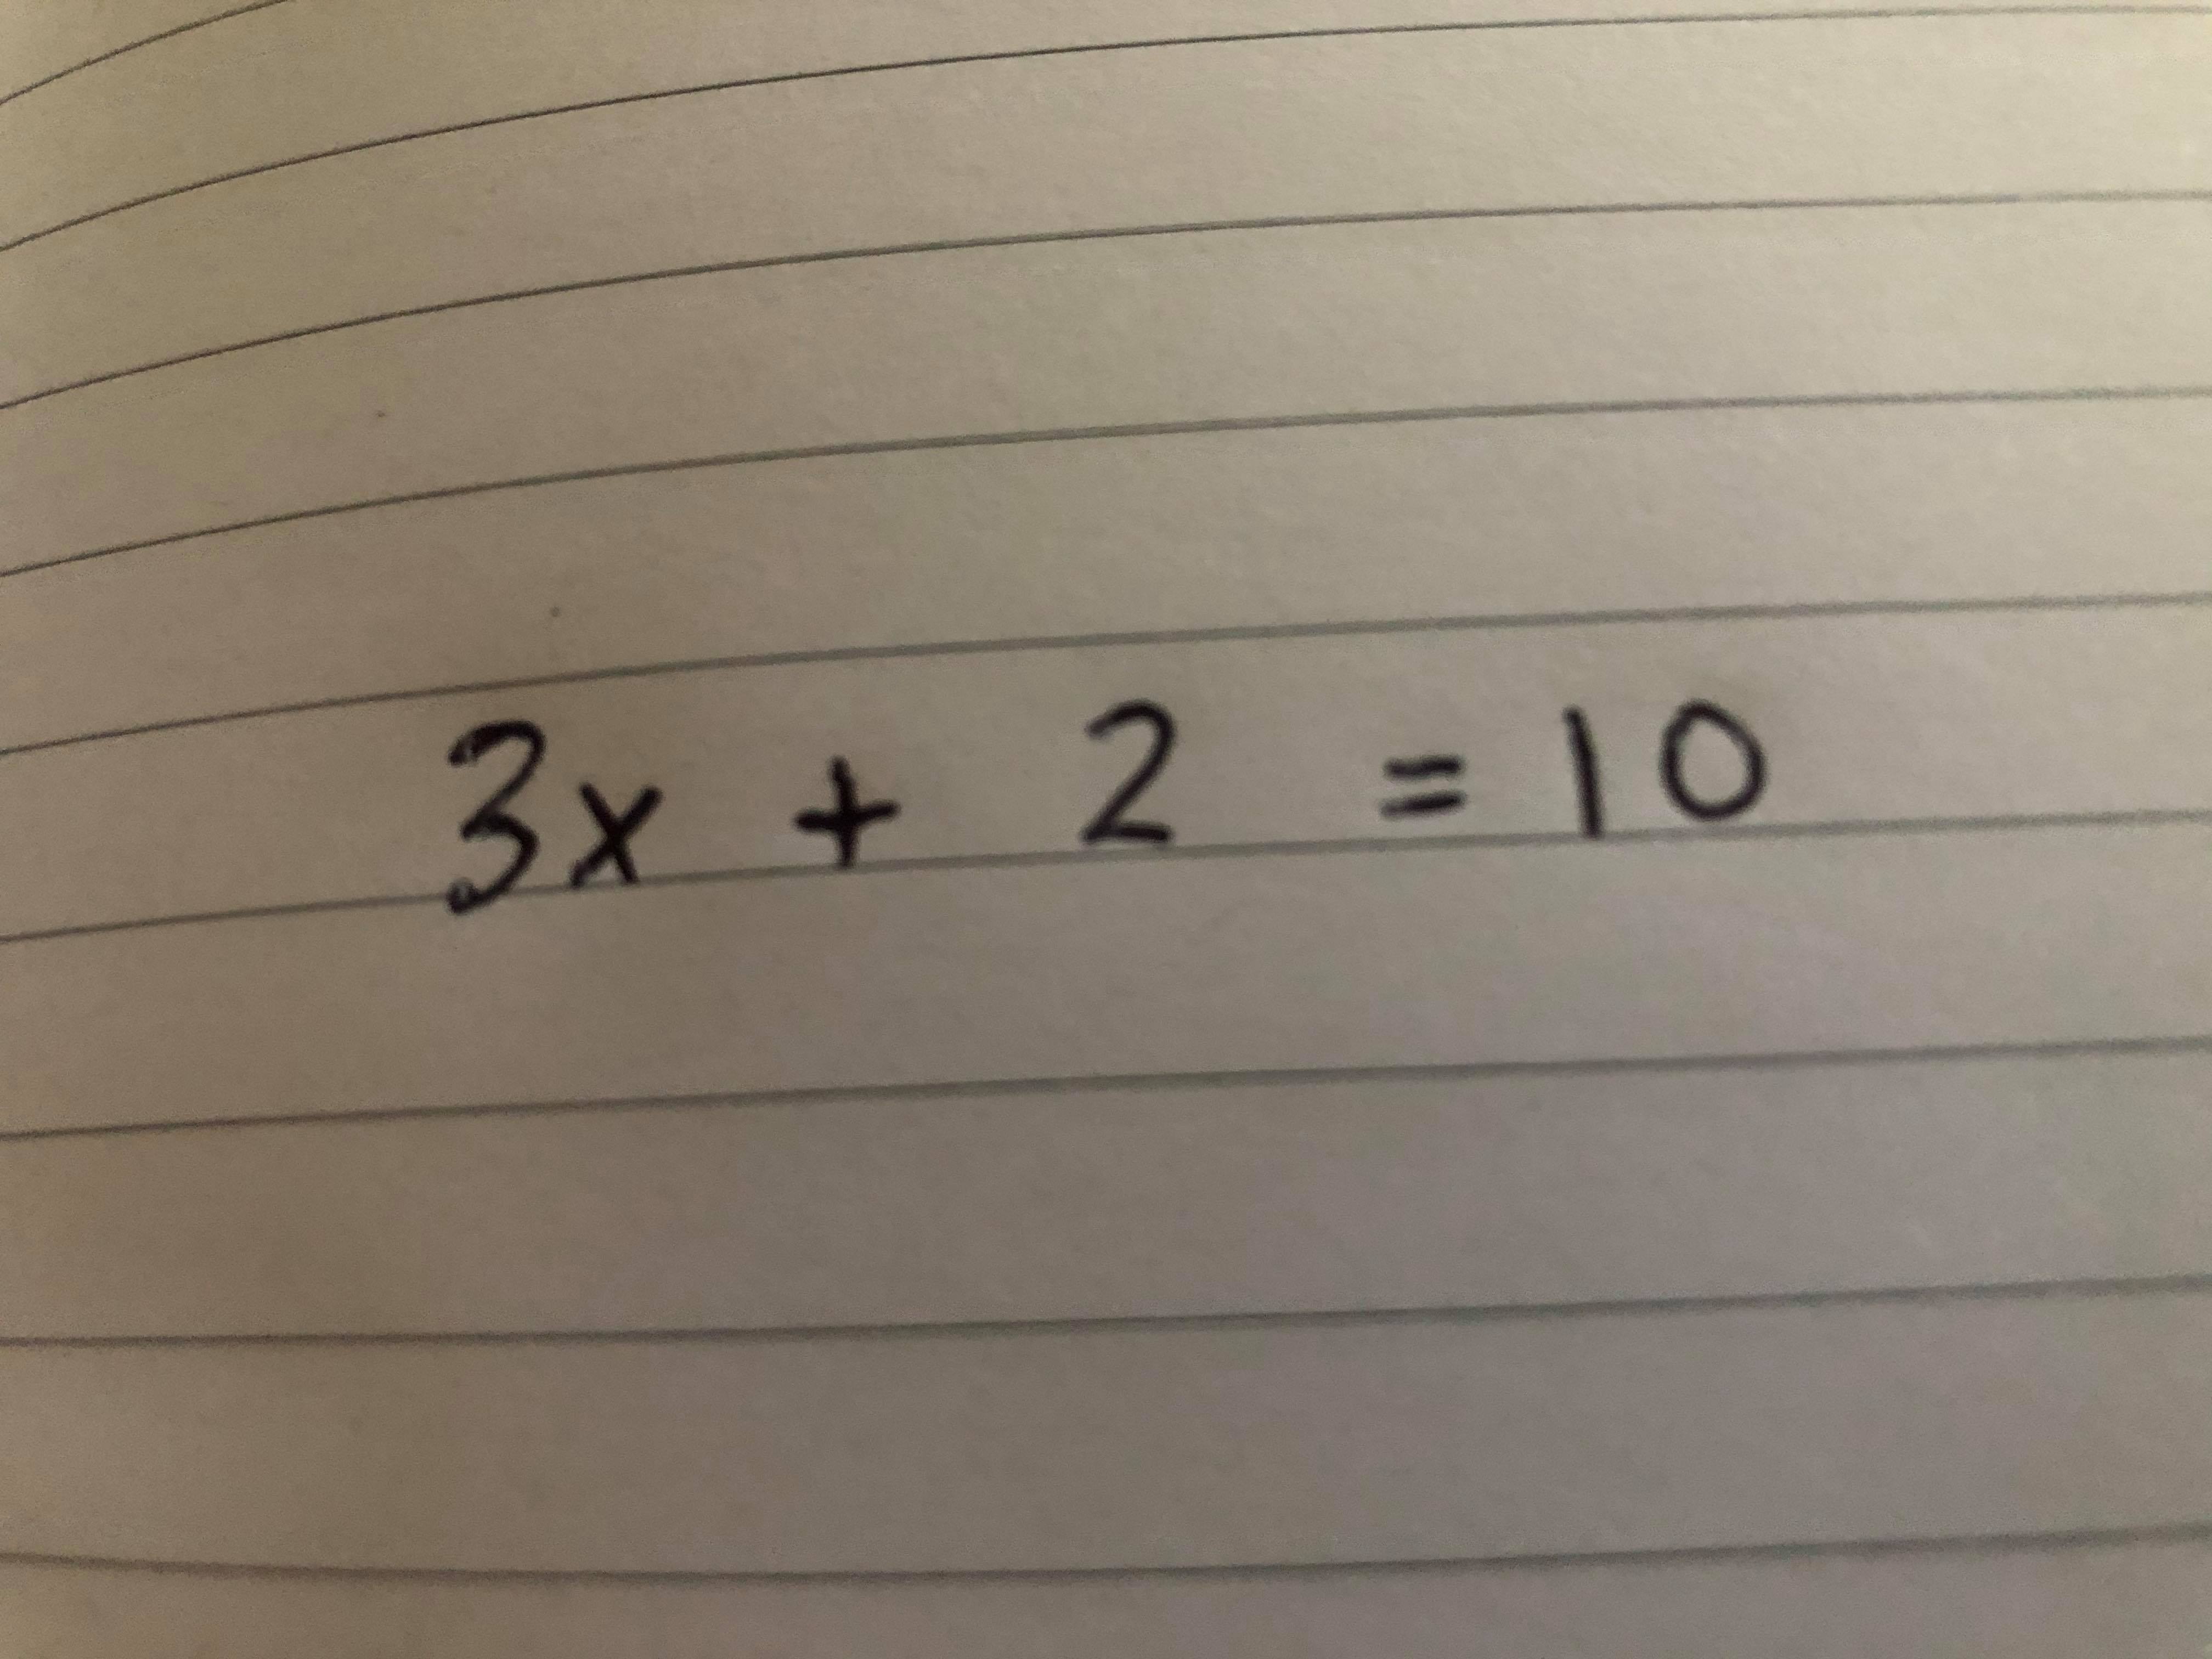 3x + 2 = 10